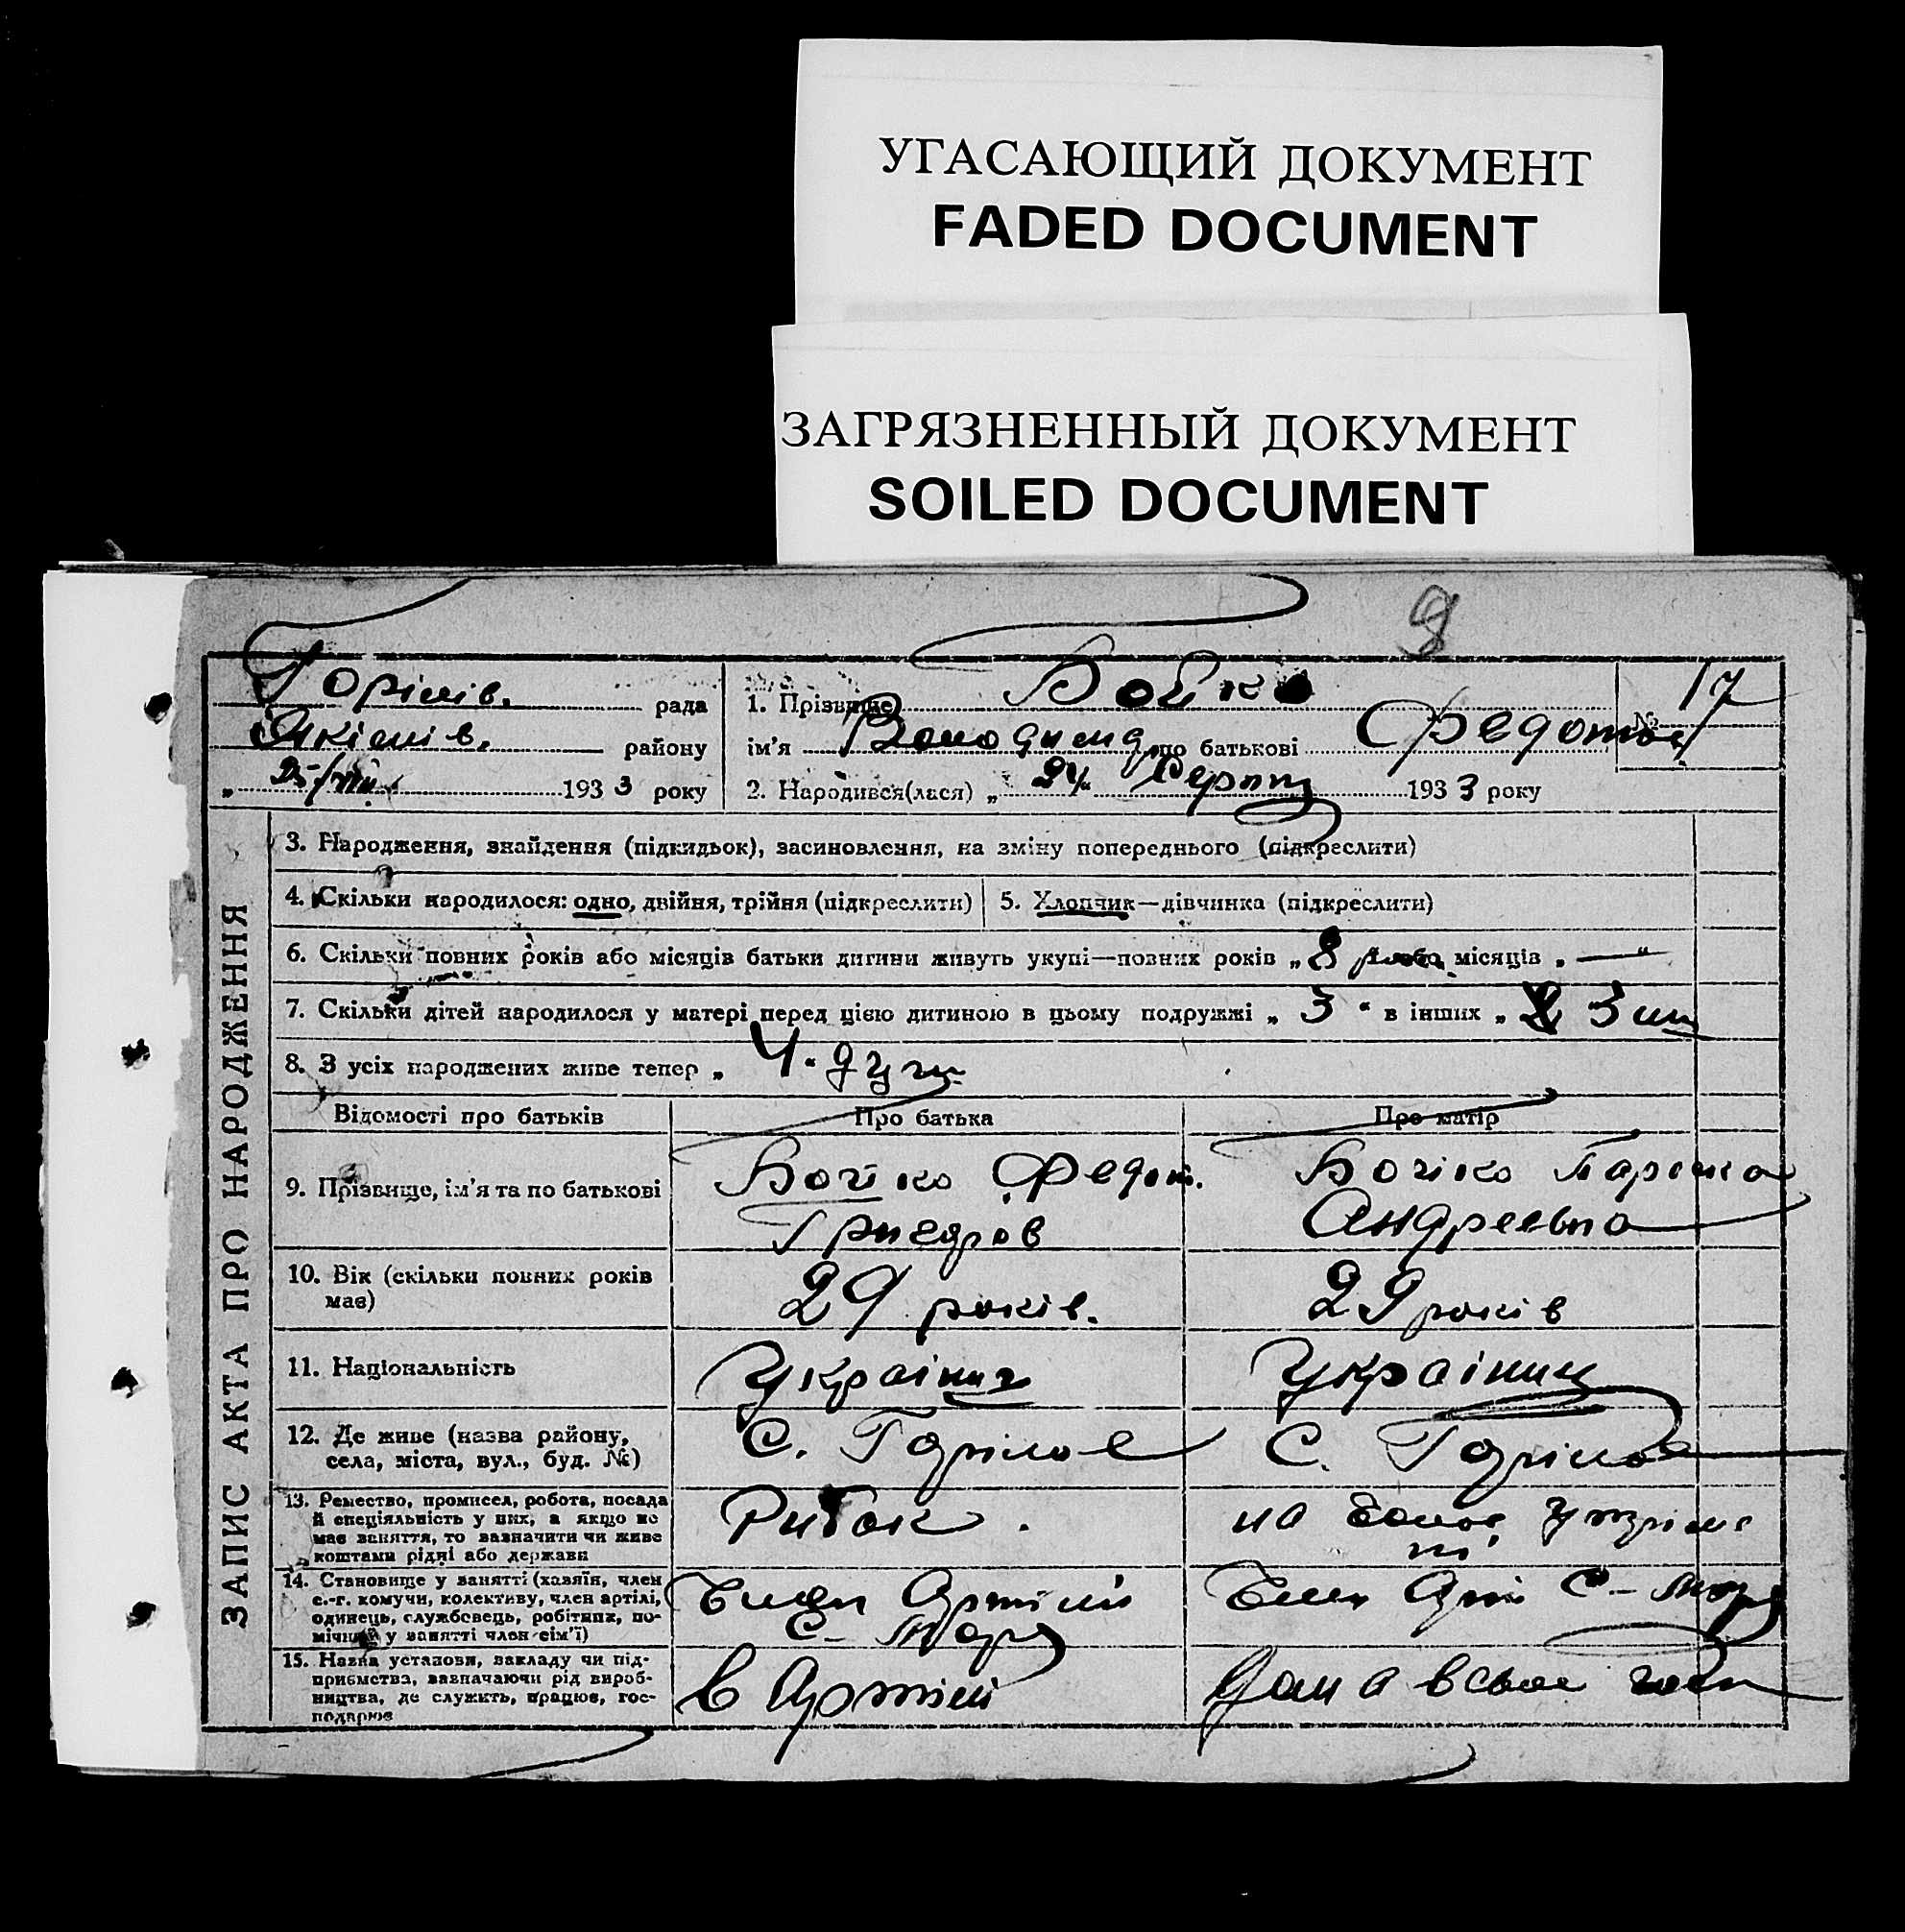 УГАСАЮЩИЙ ДОКУМЕНТ
FADED DOCUMENT
ЗАГРЯЗНЕННЫЙ ДОКУМЕНТ
SOILED DOCUMENT
рада
району
193 3 року
1. Прізвище Бойко
ім'я Володимир по батькові Федотов
№ 17
2. Народився(лася) „ 24 Серпня 193 3 року
ЗАПИС АКТА ПРО НАРОДЖЕННЯ
3. Народження, знайдення (підкидьок), засиновлення, на зміну попереднього (підкреслити)
4. Скільки народилося: одно, двійня, трійня (підкреслити)
5. Хлопчик—дівчинка (підкреслити)
6. Скільки повних років або місяців батьки дитини живуть укупі—повних років „ 8 місяців „ — "
7. Скільки дітей народилося у матері перед цією дитиною в цьому подружжі „ 3 " в інших „ 3
8. З усіх народжених живе тепер „ 4
Відомості про батьків
Про батька
Про матір
9. Прізвище, ім'я та по батькові
Бойко Федот.
Бойко
Андреевна
10. Вік (скільки повних років
має)
29 років.
29 років
11. Національність
Українц
Українц
12. Де живе (назва району,
села, міста, вул., буд. №)
С. Горілое
С. Горілое
13. Ремество, промисел, робота, посада
й спеціяльність у них, а якщо не
має заняття, то зазначити чи живе
коштами рідні або держави
Рибак.
на
14. Становище у занятті (хазяїн, член
с.-г. комуни, колективу, член артілі,
одинець, службовець, робітник, по-
мічний у занятті член сім'ї)
Член Артілі
Член Арт
15. Назва установи, закладу чи під-
приємства, зазначаючи рід вироб-
ництва, де служить, працює, гос-
подарює
в Артілі